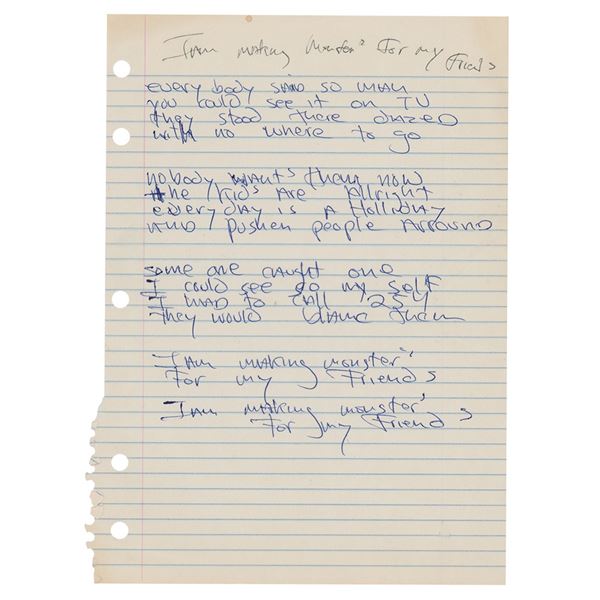 I am making Monster's for my Friend's
every body said so man
you could see it on TV
they stood there dazed
with no where to go
nobody wants them now
the Kid's are Allright
every day is a Holliday
and pushen people Arround
some one caught one
I could see go my self
I had to call 254
They would blame them
I am making monster's
For my Friend's
I am making monster's
For my Friend's